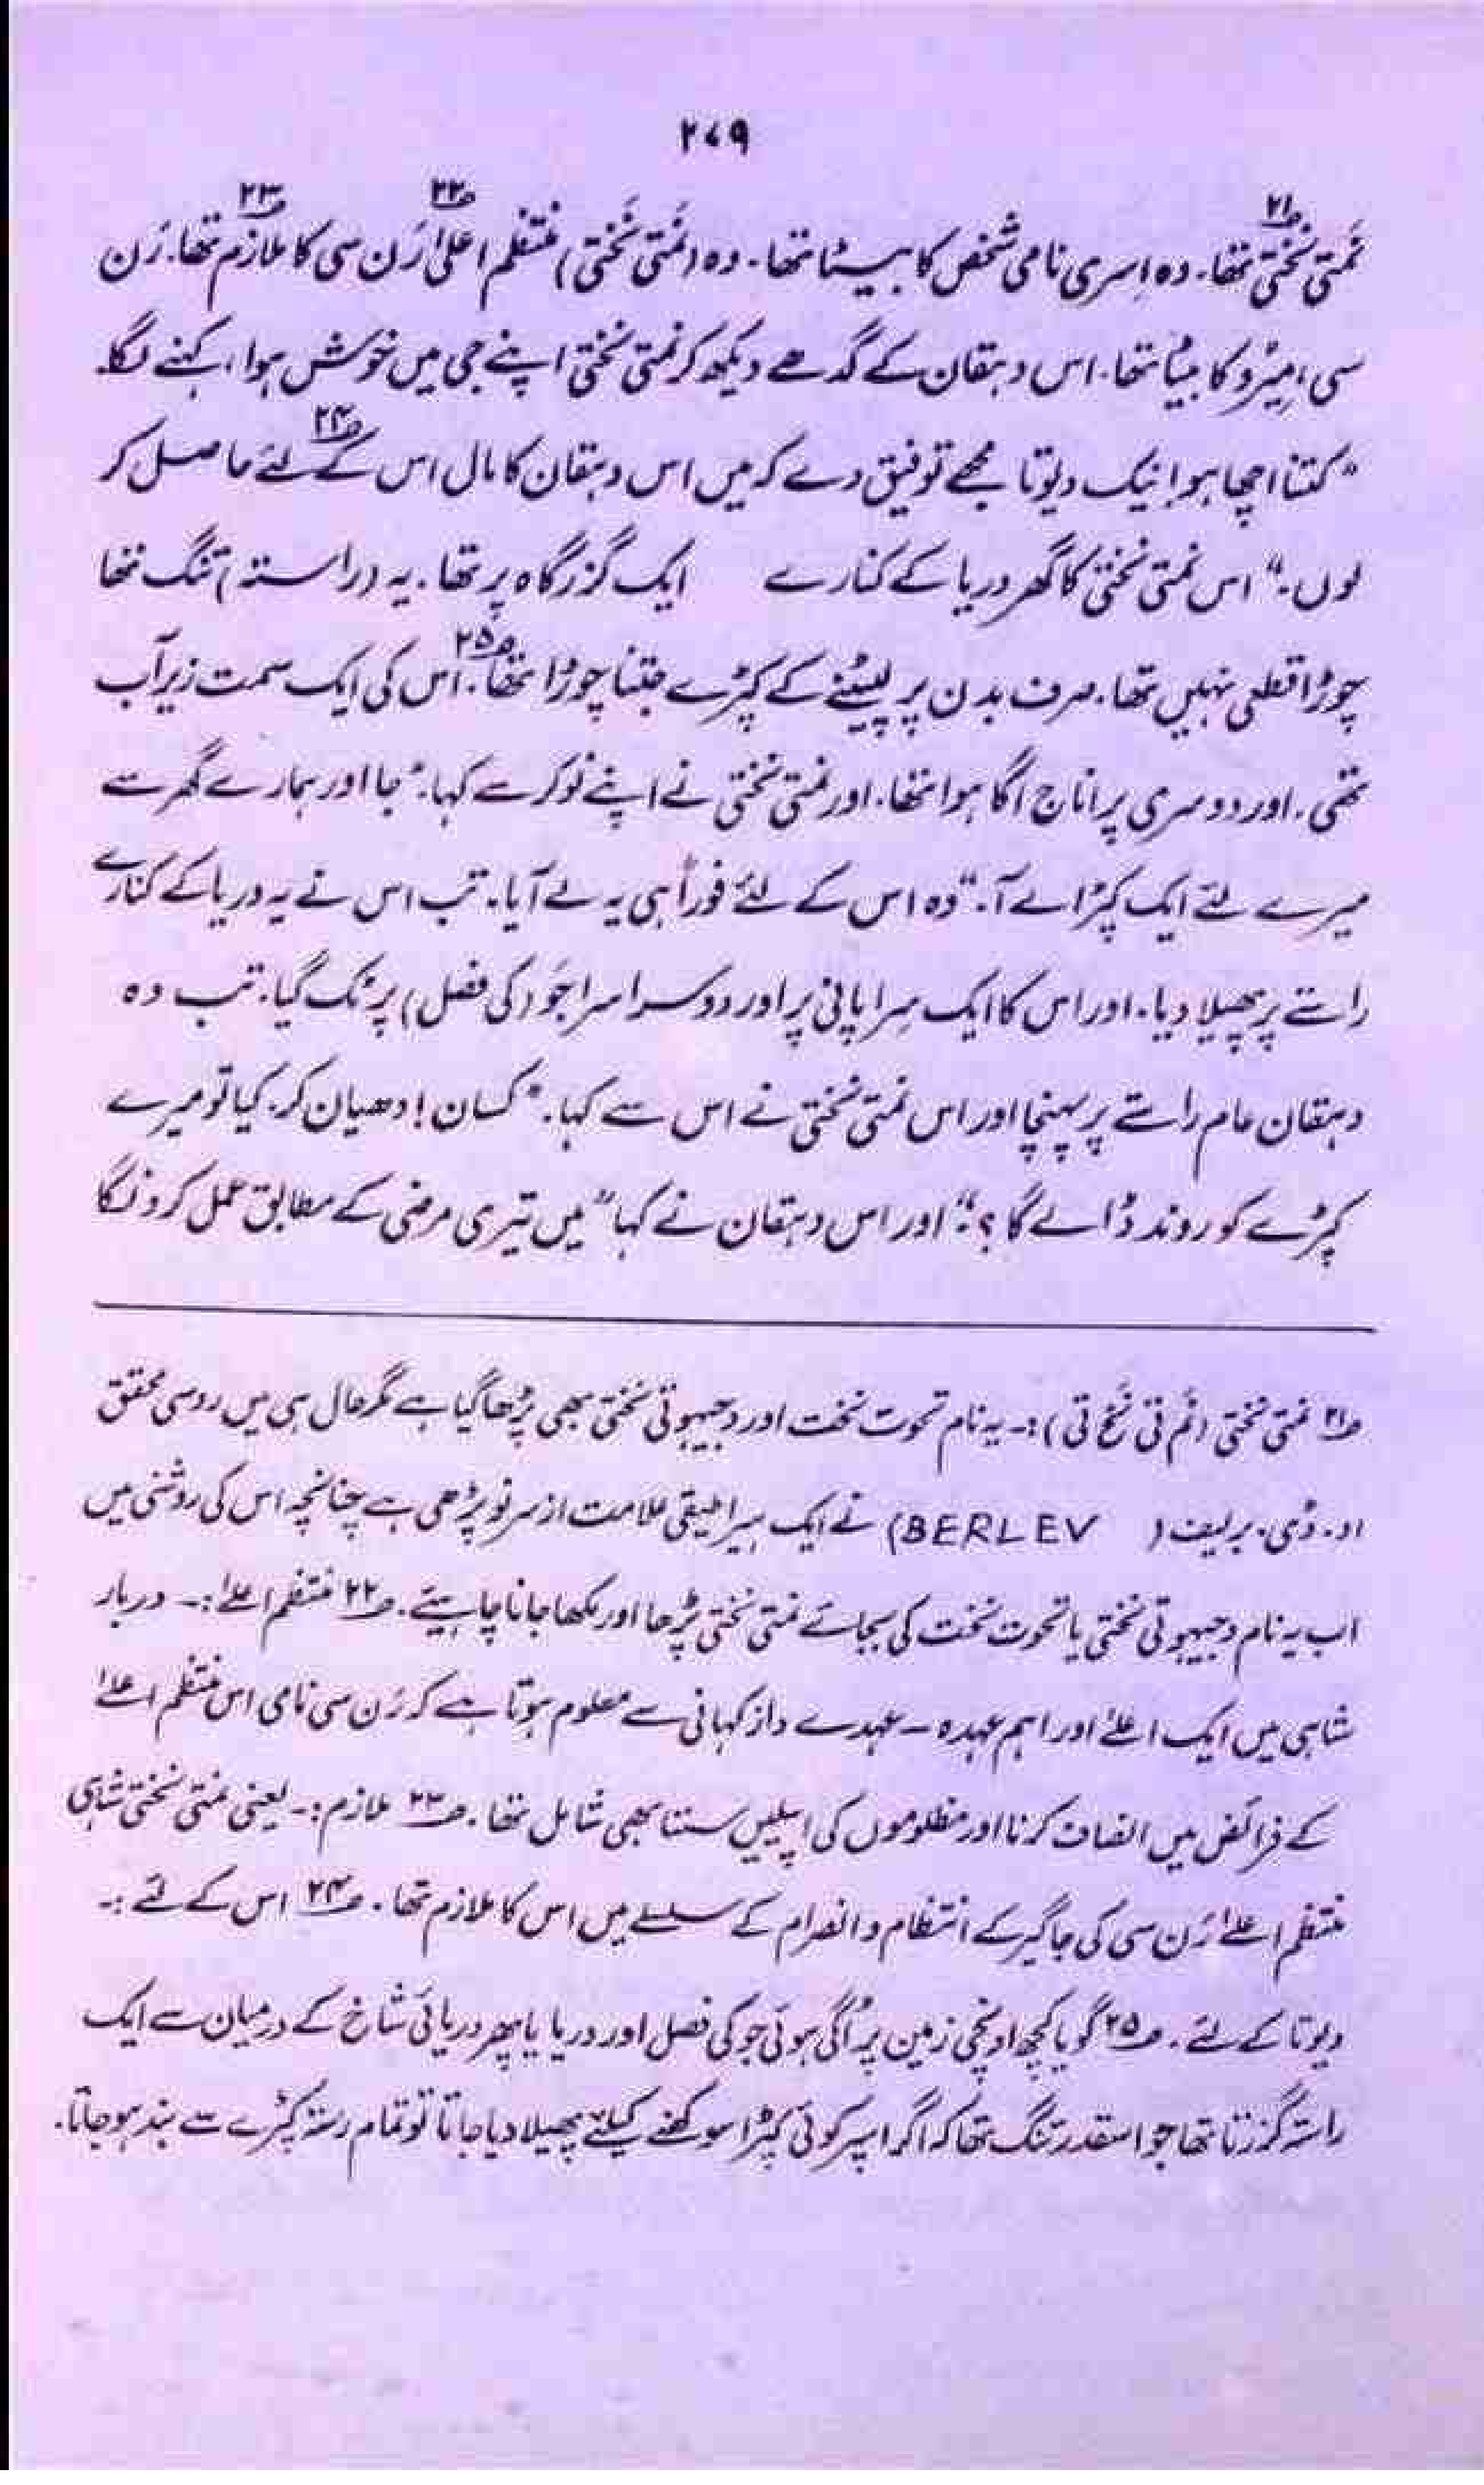 ۲۷۹
نَمتی نَختی۲۱؎ تھا۔ وہ اِسری نامی شخص کا بیٹا تھا۔ وہ (نَمتی نَختی) منتظم اعلیٰ۲۲؎ رَن سی کا ملازم۲۳؎ تھا۔ رَن
سی، مِیرُو کا بیٹا تھا۔ اس دہقان کے گدھے دیکھ کر نمتی نختی اپنے جی میں خوش ہوا، کہنے لگا۔
"کتنا اچھا ہو! نیک دیوتا مجھے توفیق دے کہ میں اس دہقان کا مال اس کے لئے۲۴؎ حاصل کر
لوں۔" اس نمتی نختی کا گھر دریا کے کنارے ایک گزرگاہ پر تھا۔ یہ (راستہ) تنگ تھا
چوڑا قطعی نہیں تھا۔ صرف بدن پر لپیٹنے کے کپڑے جتنا چوڑا تھا۲۵؎۔ اس کی ایک سمت زیرآب
تھی۔ اور دوسری پر اناج اگا ہوا تھا۔ اور نمتی نختی نے اپنے نوکر سے کہا۔ "جا اور ہمارے گھر سے
میرے لئے ایک کپڑا لے آ۔" وہ اس کے لئے فوراً ہی یہ لے آیا۔ تب اس نے یہ دریا کے کنارے
راستے پر پھیلا دیا۔ اور اس کا ایک سِرا پانی پر اور دوسرا سرا جَو (کی فصل) پر ٹک گیا۔ تب وہ
دہقان عام راستے پر پہنچا اور اس نمتی نختی نے اس سے کہا۔ "کسان! دھیان کر۔ کیا تو میرے
کپڑے کو روند ڈالے گا؟" اور اس دہقان نے کہا "میں تیری مرضی کے مطابق عمل کرونگا
۲۱؎ نمتی نختی (نَم تی نَخ تی):۔ یہ نام تحوت نخت اور دجیہوتی نختی بھی پڑھا گیا ہے مگر حال ہی میں روسی محقق
او۔ ڈی۔ برلیف (BERLEV) نے ایک ہیراطیقی علامت ازسرنو پڑھی ہے چنانچہ اس کی روشنی میں
اب یہ نام دجیہوتی نختی یا تحوت نخت کی بجائے نمتی نختی پڑھا اور لکھا جانا چاہیئے۔ ۲۲؎ منتظم اعلےٰ:۔ دربار
شاہی میں ایک اعلےٰ اور اہم عہدہ – عہدے دار کہانی سے معلوم ہوتا ہے کہ رَن سی نامی اس منتظم اعلےٰ
کے فرائض میں انصاف کرنا اور مظلوموں کی اپیلیں سننا بھی شامل تھا۔ ۲۳؎ ملازم:۔ یعنی نمتی نختی شاہی
منتظم اعلےٰ رَن سی کی جاگیر کے انتظام و انصرام کے سلسلے میں اس کا ملازم تھا۔ ۲۴؎ اس کے لئے:۔
دیوتا کے لئے۔ ۲۵؎ گویا کچھ اونچی زمین پر اُگی ہوئی جو کی فصل اور دریا یا پھر دریائی شاخ کے درمیان سے ایک
راستہ گزرتا تھا جو اسقدر تنگ تھا کہ اگر اسپر کوئی کپڑا سوکھنے کیلئے پھیلا دیا جاتا تو تمام رستہ کپڑے سے بند ہو جاتا۔